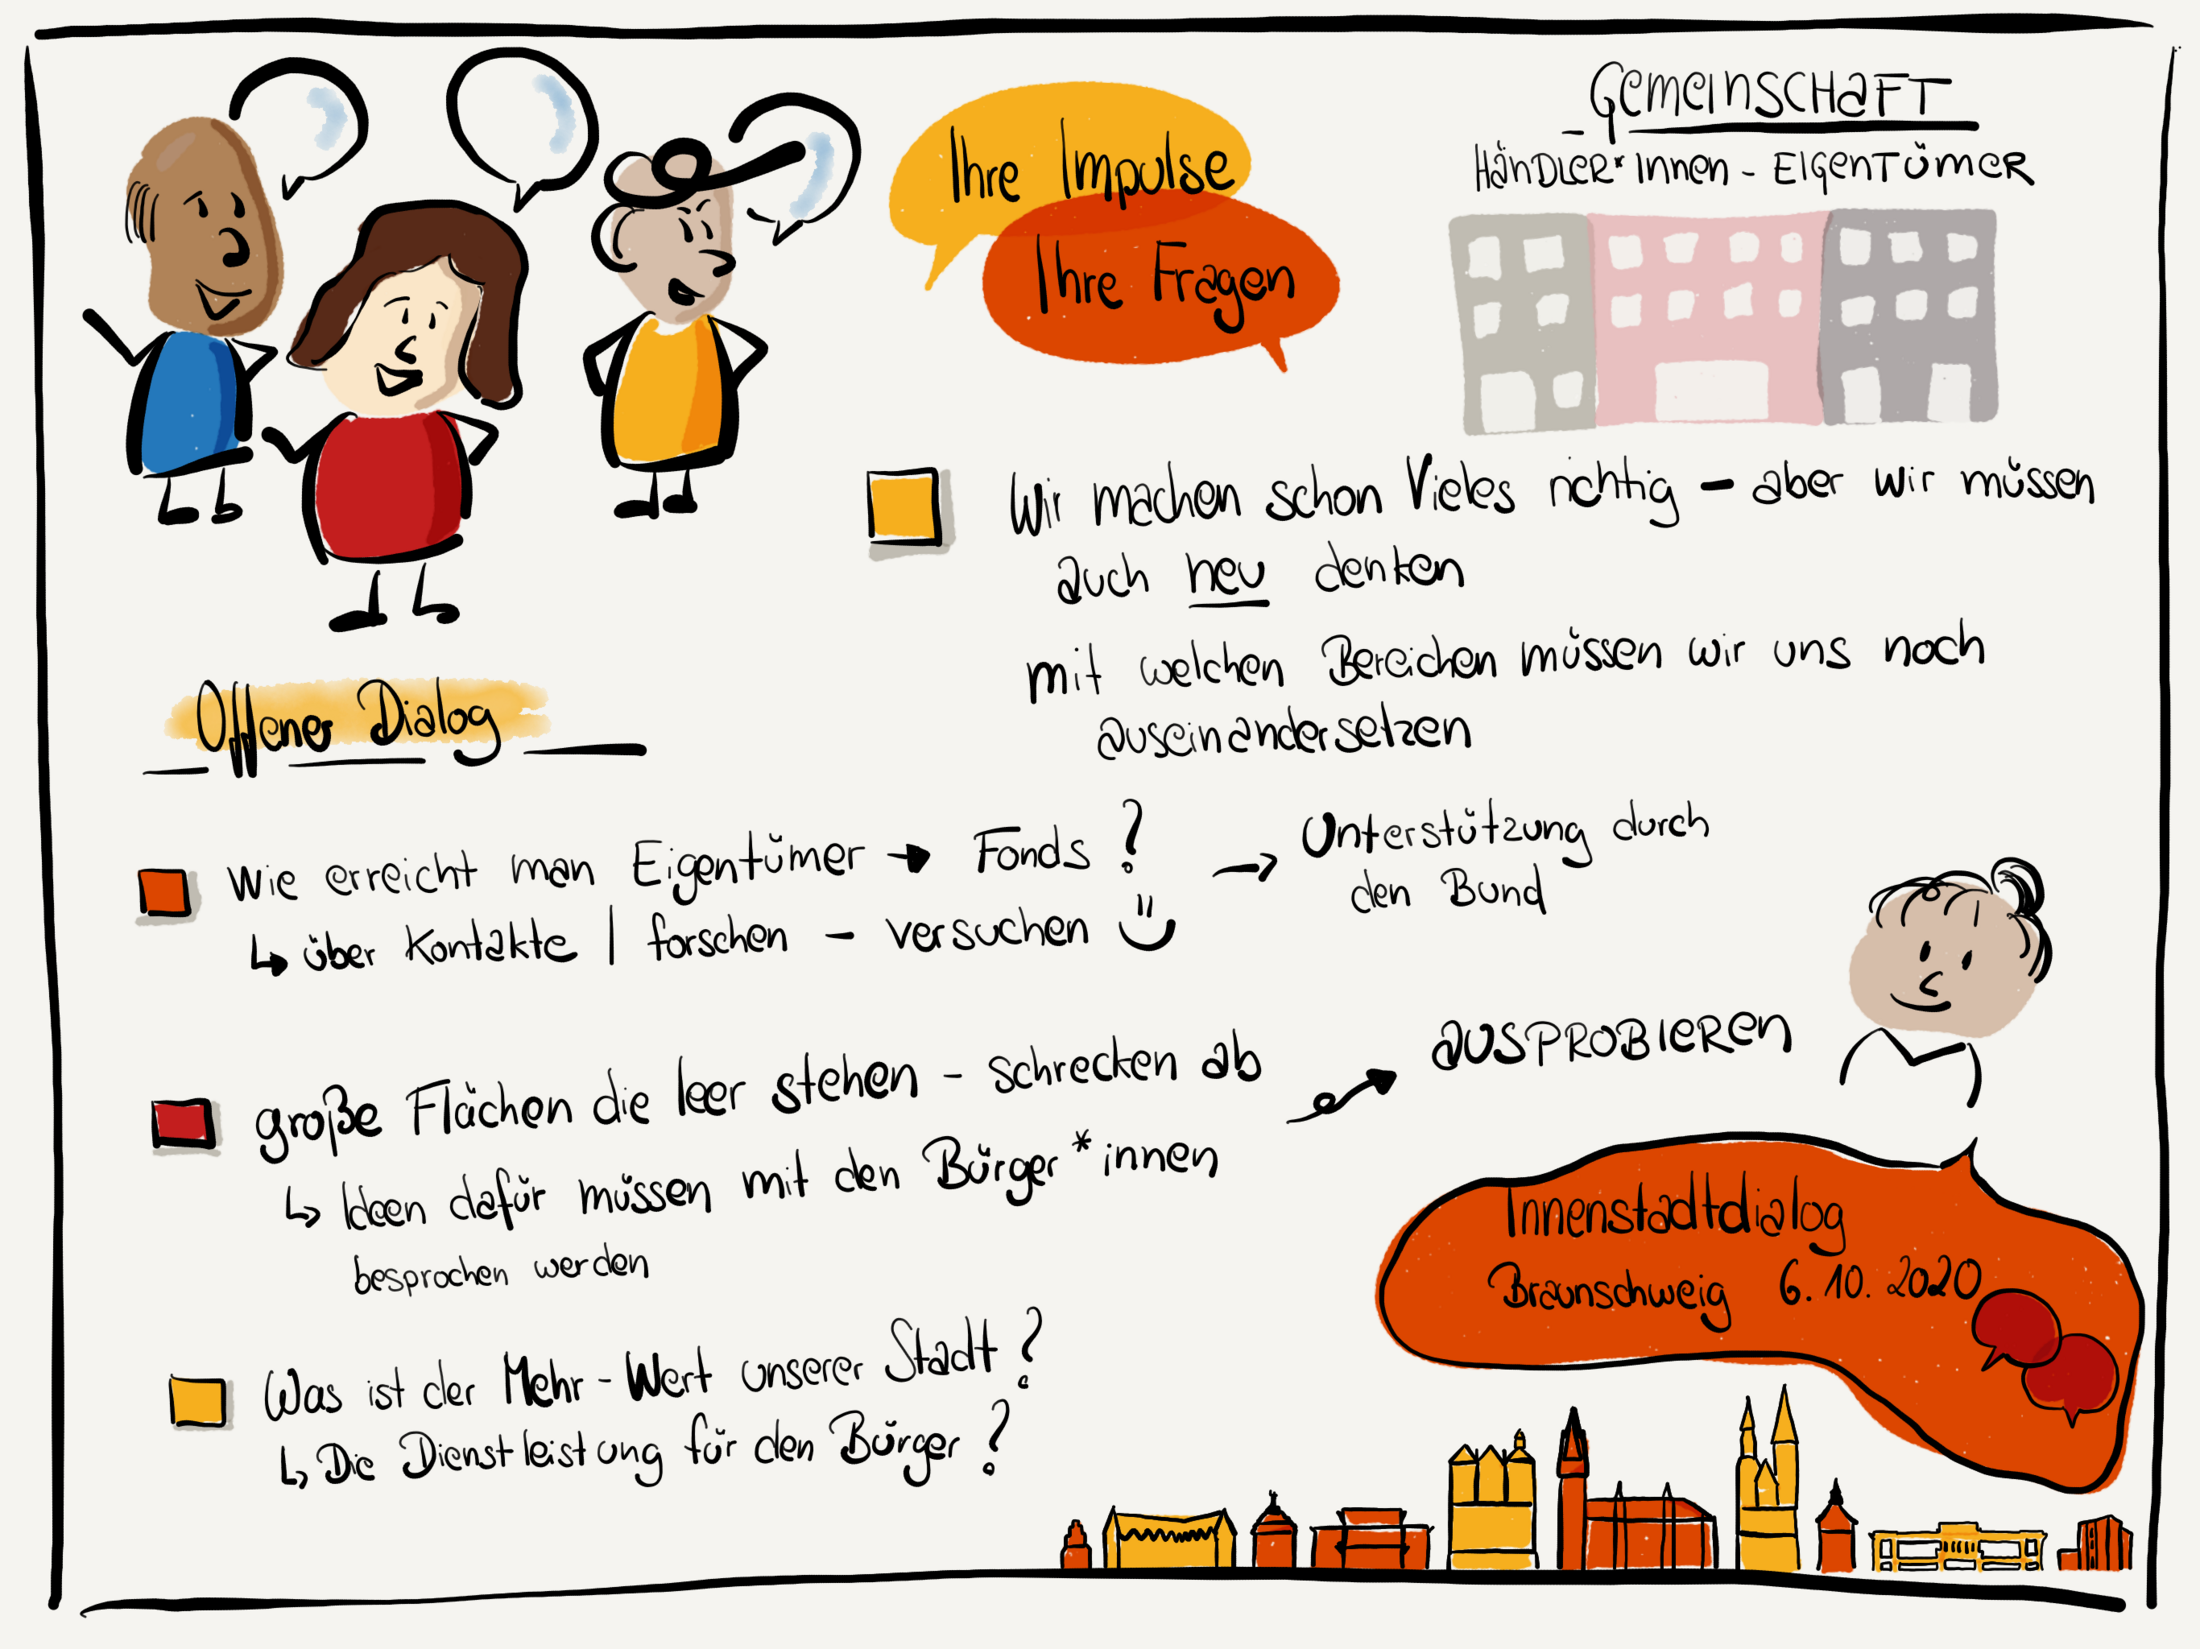 Ihre Impulse
Ihre Fragen
GEMEINSCHAFT
HÄNDLER*INNEN - EIGENTÜMER
Wir machen schon Vieles richtig - aber wir müssen
auch neu denken
mit welchen Bereichen müssen wir uns noch
auseinandersetzen
Offener Dialog
Wie erreicht man Eigentümer → Fonds?
↳ über Kontakte | forschen - versuchen
→ Unterstützung durch
den Bund
große Flächen die leer stehen - schrecken ab
↳ Ideen dafür müssen mit den Bürger*innen
besprochen werden
AUSPROBIEREN
Was ist der Mehr-Wert unserer Stadt?
↳ Die Dienstleistung für den Bürger?
Innenstadtdialog
Braunschweig 6.10.2020